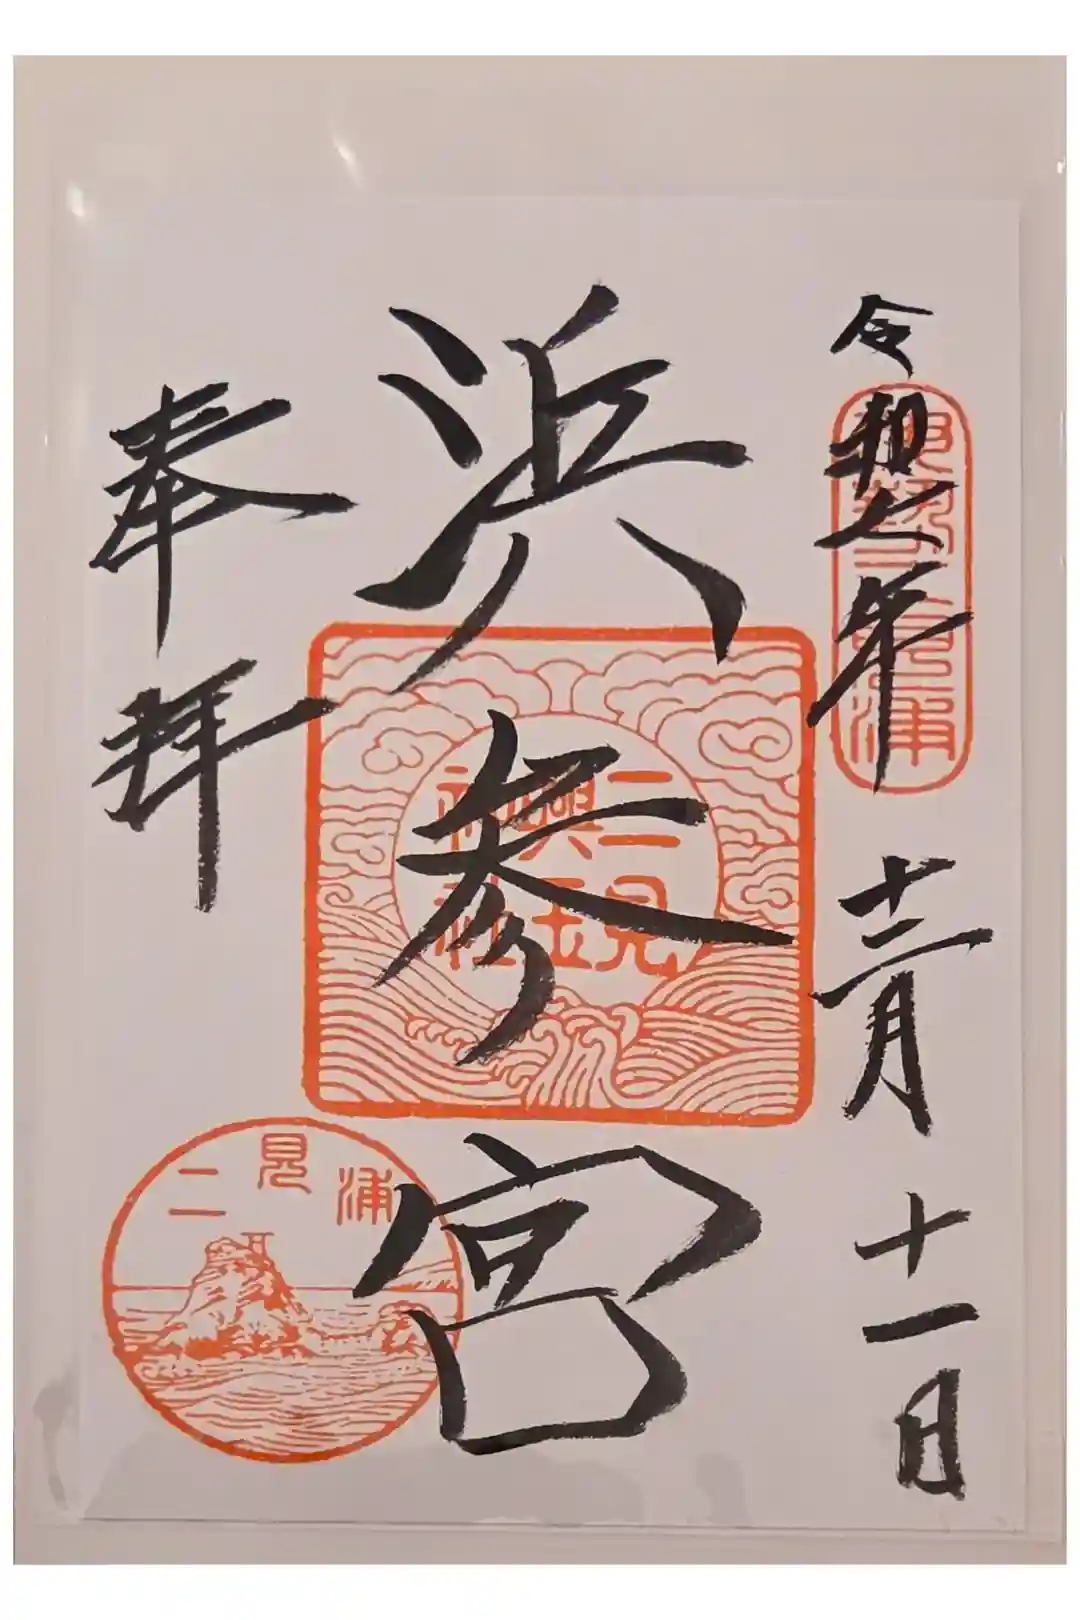 令和七年十二月十一日
勢二見浦
浜参宮
二見
興玉
神社
奉拝
二見浦